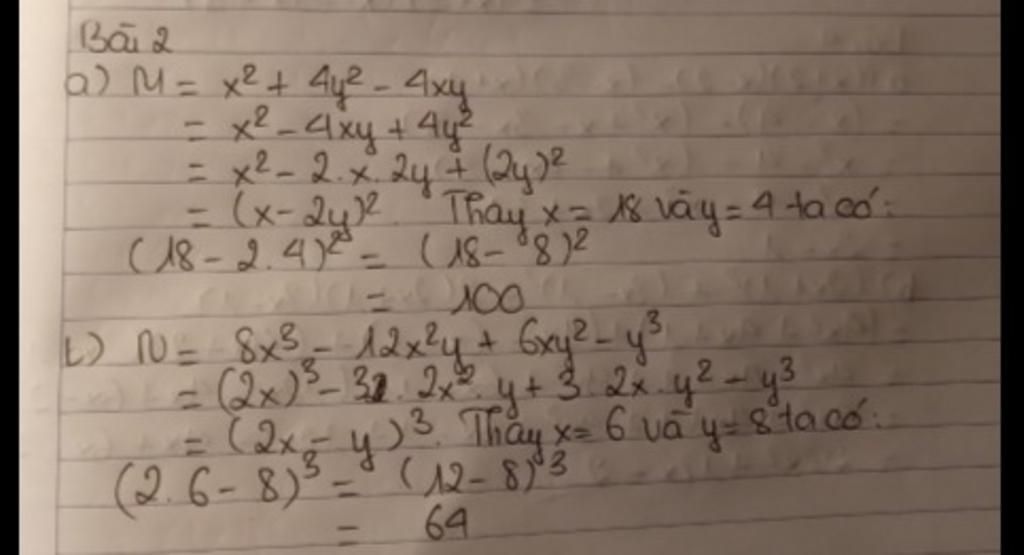 Bài 2
a) M = x² + 4y² - 4xy
= x² - 4xy + 4y²
= x² - 2.x.2y + (2y)²
= (x - 2y)². Thay x = 18 và y = 4 ta có:
(18 - 2.4)² = (18 - 8)²
= 100
b) N = 8x³ - 12x²y + 6xy² - y³
= (2x)³ - 3.2x².y + 3.2x.y² - y³
= (2x - y)³. Thay x = 6 và y = 8 ta có:
(2.6 - 8)³ = (12 - 8)³
= 64